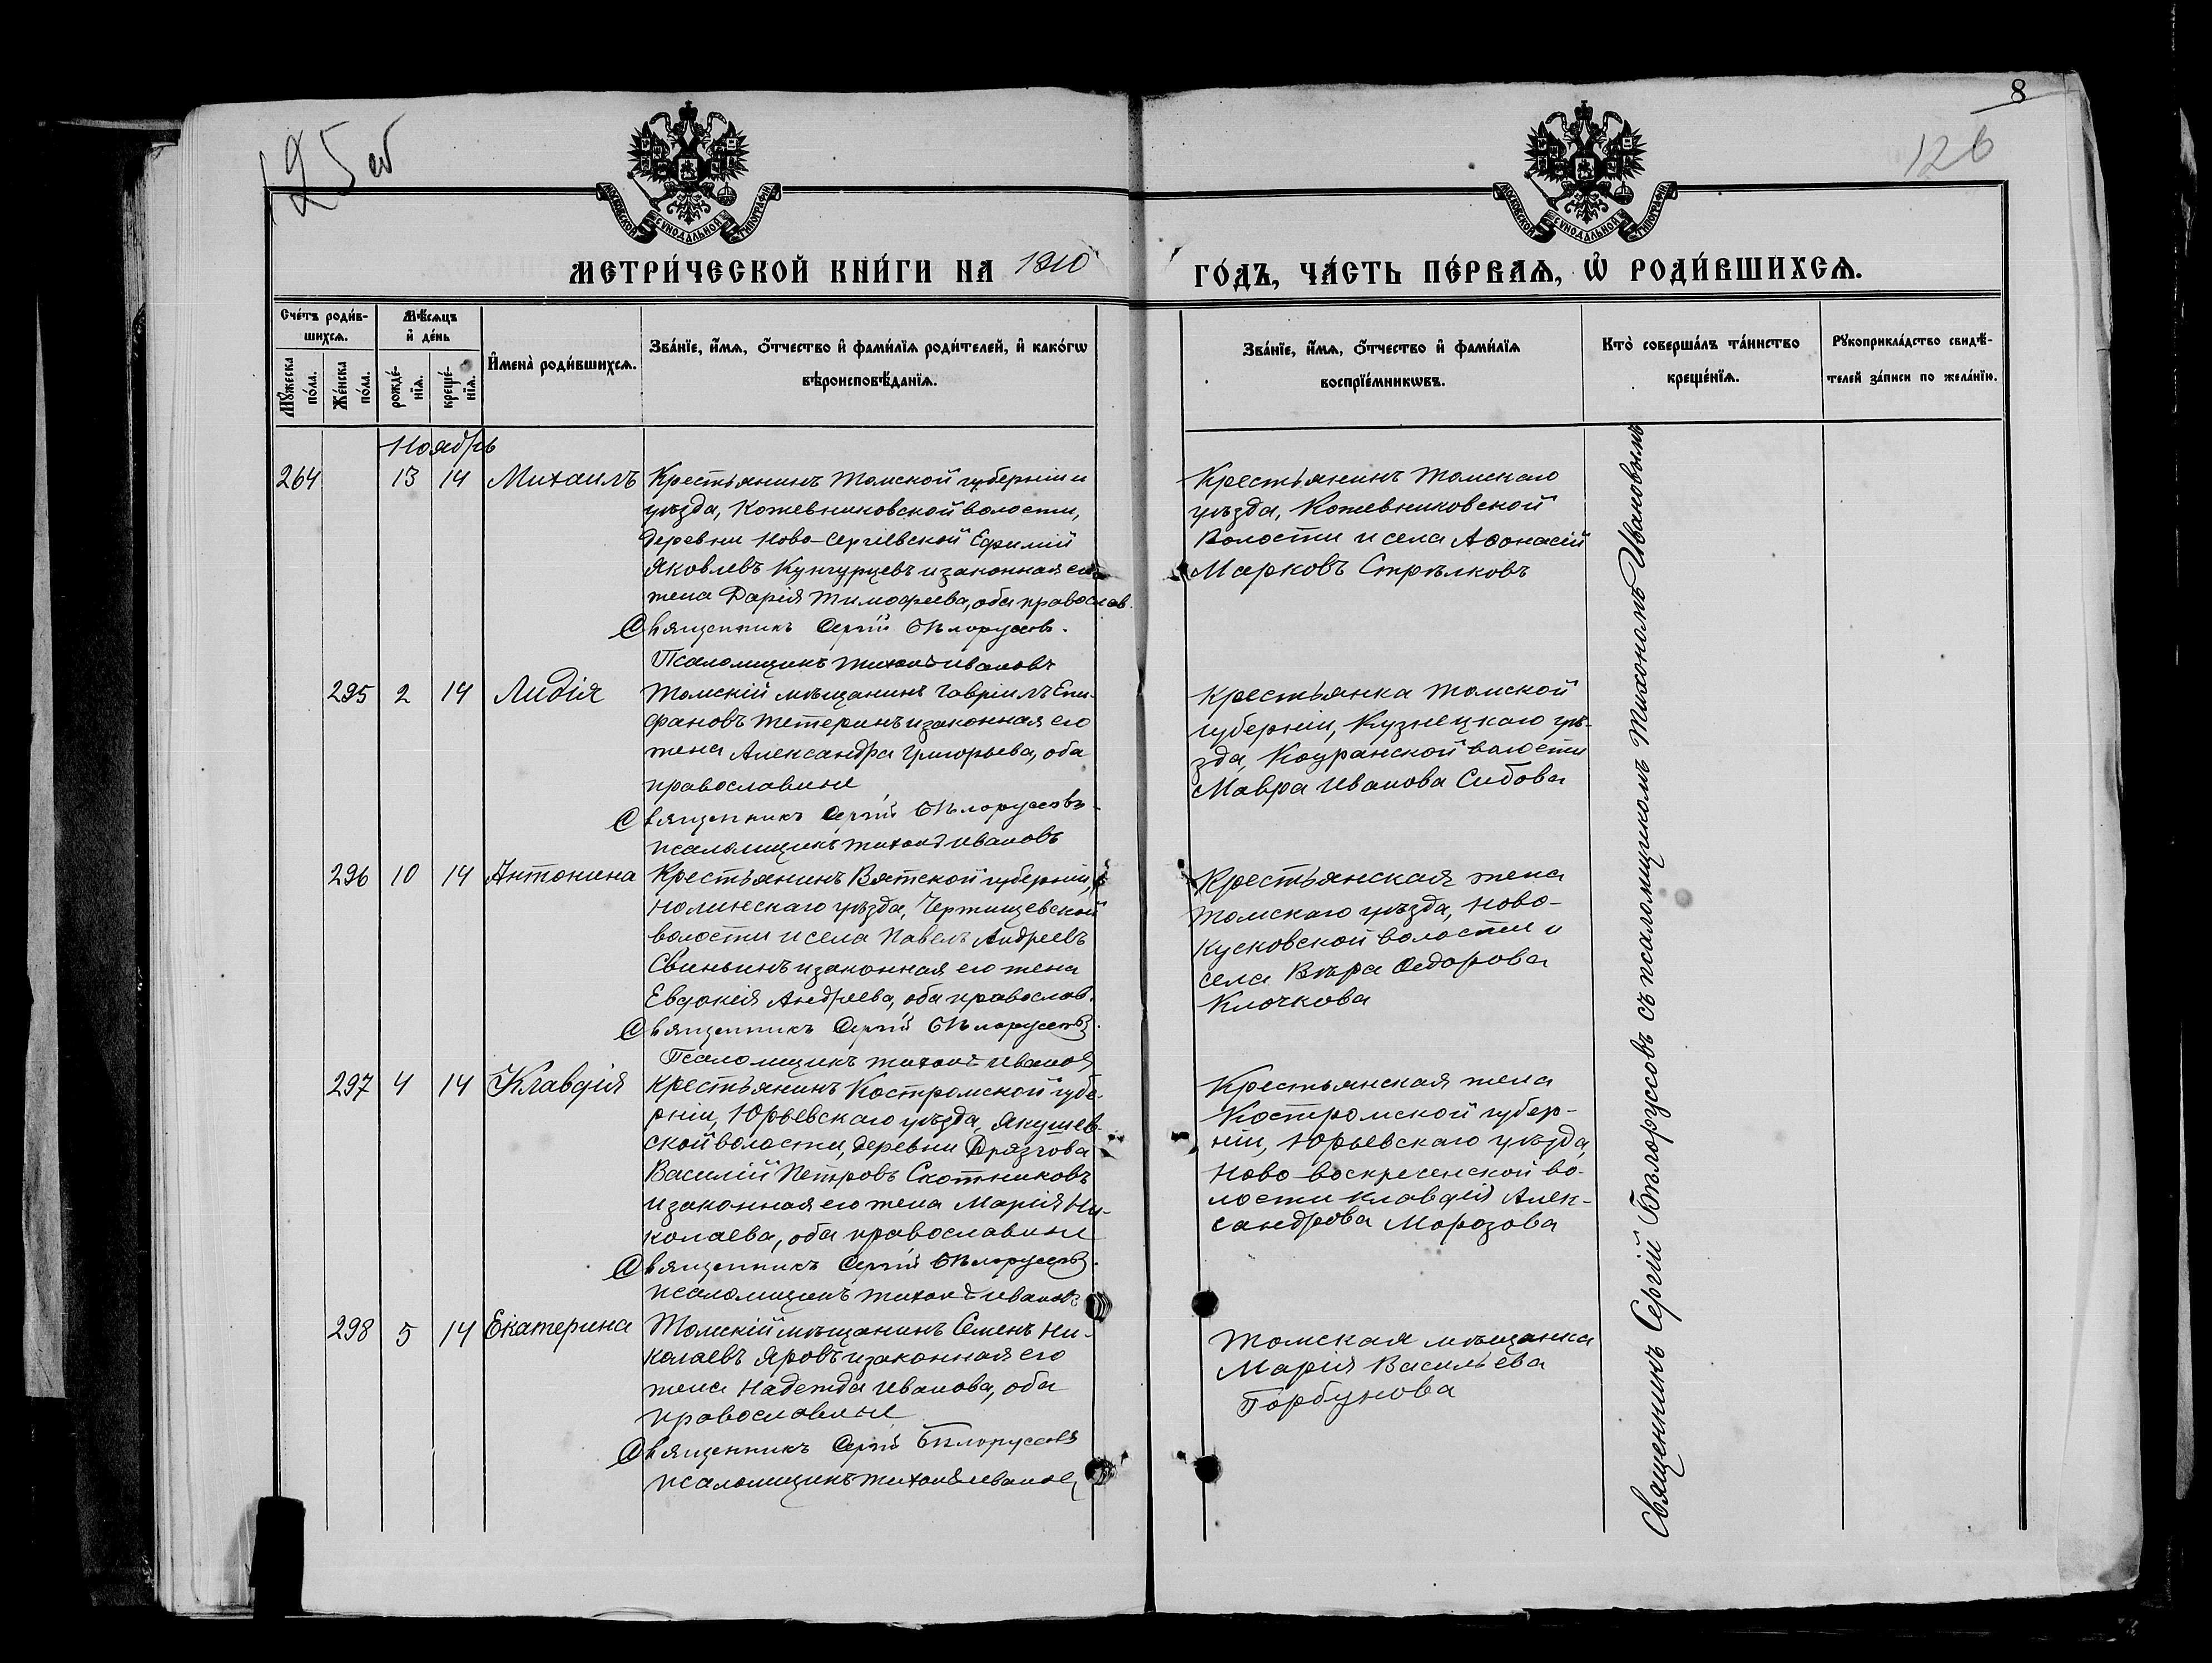 8
125 об
126
МОСКОВСКОЙ СѴНОДАЛЬНОЙ ТИПОГРАФІИ
МОСКОВСКОЙ СѴНОДАЛЬНОЙ ТИПОГРАФІИ
МЕТРИ́ЧЕСКОЙ КНИ́ГИ НА 1910 ГО́ДЪ, ЧА́СТЬ ПЕ́РВАѦ, Ѽ РОДИ́ВШИХСѦ.
Сче́тъ роди́в-
шихсѧ.
Мꙋ́жеска по́ла.
Же́нска по́ла.
Мѣ́сѧцъ
и҆ де́нь
рожде́-
нїѧ.
креще́-
нїѧ.
И҆мена̀ роди́вшихсѧ.
Зва́нїе, и҆́мѧ, ѻ҆́тчество и҆ фами́лїѧ роди́телей, и҆ како́гѡ
вѣроисповѣ́данїѧ.
Зва́нїе, и҆́мѧ, ѻ҆́тчество и҆ фами́лїѧ
воспрїе́мникѡвъ.
Кто̀ соверша́лъ та́инство
креще́нїѧ.
Рꙋкоприкла́дство свидѣ́-
телей за́писи по жела́нїю.
Ноябрь
264 13 14 Михаилъ
Крестьянинъ Томской губерніи и
уѣзда, Кожевниковской волости,
деревни Ново-Сергіевской Ефимій
Яковлевъ Кунгурцевъ и законная его
жена Дарія Тимофеева, оба православ.
Священникъ Сергій Бѣлоруссовъ.
Псаломщикъ Тихонъ Ивановъ
Крестьянинъ Томскаго
уѣзда, Кожевниковской
волости и села Аѳонасій
Марковъ Стрѣлковъ
295 2 14 Лидія
Томскій мѣщанинъ Гавріилъ Епи-
фановъ Тетеринъ и законная его
жена Александра Григорьева, оба
православные
Священникъ Сергій Бѣлоруссовъ.
псаломщикъ Тихонъ Ивановъ
Крестьянка Томской
губерніи, Кузнецкаго уѣ-
зда, Коуракской волости
Мавра Иванова Сибова
296 10 14 Антонина
Крестьянинъ Вятской губерніи,
Нолинскаго уѣзда, Чертищевской
волости и села Павелъ Андреевъ
Свиньинъ и законная его жена
Евдокія Андреева, оба православ.
Священникъ Сергій Бѣлоруссовъ.
Псаломщикъ Тихонъ Ивановъ
Крестьянская жена
Томскаго уѣзда, Ново-
Кусковской волости и
села Вѣра Ѳедорова
Клочкова
297 4 14 Клавдія
Крестьянинъ Костромской губе-
рніи, Юрьевскаго уѣзда, Якушев-
ской волости, деревни Дрязгова
Василій Петровъ Скотниковъ
и законная его жена Марія Ни-
колаева, оба православные
Священникъ Сергій Бѣлоруссовъ.
псаломщикъ Тихонъ Ивановъ
Крестьянская жена
Костромской губер-
ніи, Юрьевскаго уѣзда,
Ново-воскресенской во-
лости Клавдія Алек-
сандрова Морозова
298 5 14 Екатерина
Томскій мѣщанинъ Семенъ Ни-
колаевъ Яровъ и законная его
жена Надежда Иванова, оба
православные
Священникъ Сергій Бѣлоруссовъ
псаломщикъ Тихонъ Ивановъ
Томская мѣщанка
Марія Васильева
Горбунова
Священникъ Сергій Бѣлоруссовъ съ псаломщикомъ Тихономъ Ивановымъ